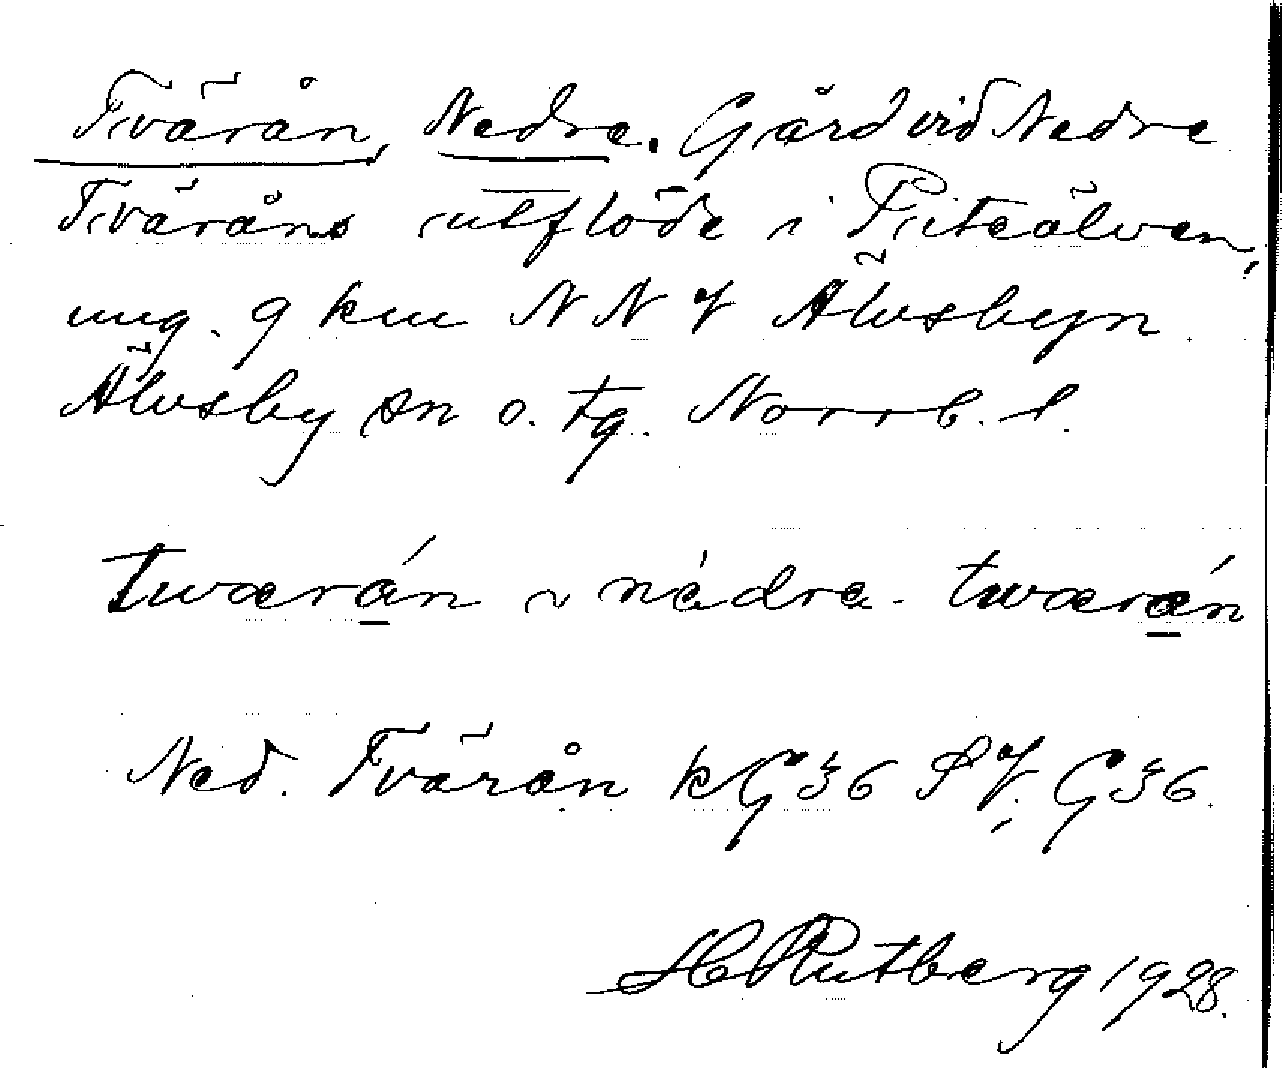 Tvärån, Nedre. Gård vid Nedre
Tväråns utflöde i Piteälven,
ung. 9 km NNV Älvsbyn
Älvsby sn o. tg. Norrb. l.
twærán ~ nédra - twærán
Ned. Tvärån kG36 SV, G36.
H Rutberg 1928.